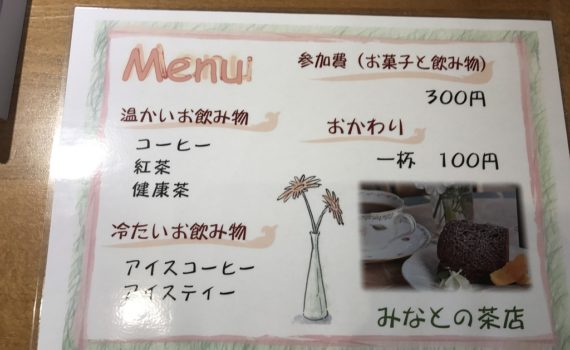 Menu
温かいお飲み物
コーヒー
紅茶
健康茶
冷たいお飲み物
アイスコーヒー
アイスティー
参加費（お菓子と飲み物）
300円
おかわり
一杯 100円
みなとの茶店